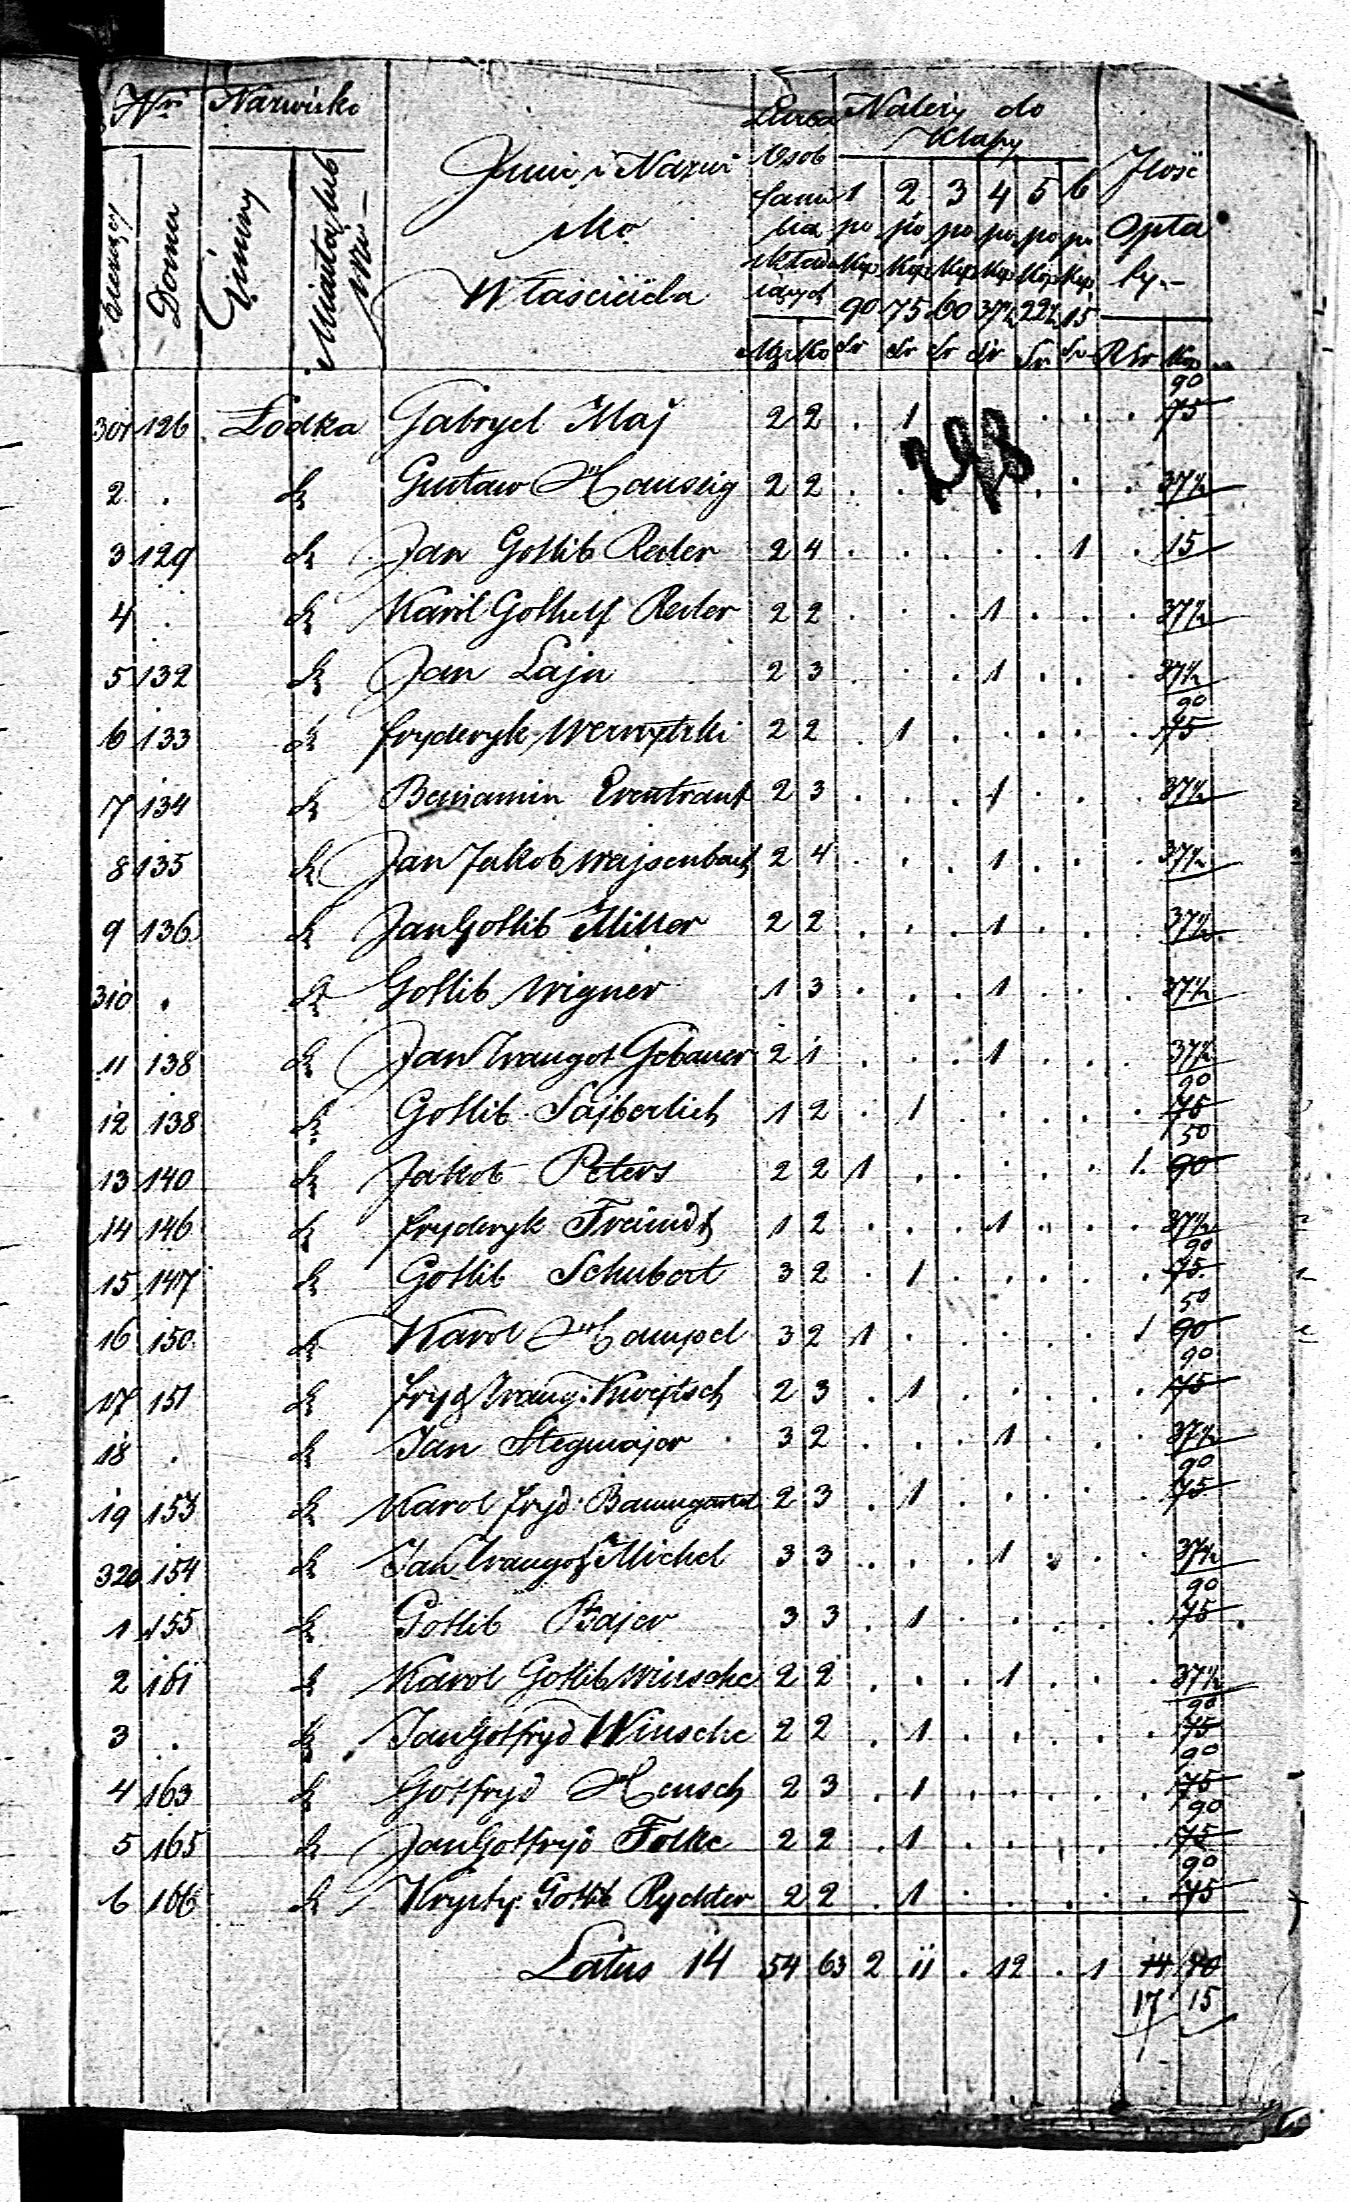 Nr Nazwisko
Liczba Należy do
Klassy
Jmie i Nazwi
sko
Właściciela
bieżący Domu Gminy Miasta lub Wsi
Osob
familia
składa
iących
1 2 3 4 5 6
po po po po po po
Kop Kop Kop Kop Kop Kop
90 75 60 37½ 22½ 15
Ilość
Opła
ty.-
Sr Sr Sr Sr Sr Sr RSr Kop
90
301 126 Łodka Gabryel Maj 2 2 . 1 . . . 75
298
2 . d Gustaw Haussig 2 2 . . . . . 37½
3 129 d Jan Gottlib Reder 2 4 . . . . . 1 . 15
4 . d Karol Gothelf Reder 2 2 . . . 1 . . . 37½
5 132 d Jan Lajn 2 3 . . . 1 . . . 37½
90
6 133 d Fryderyk Werwytzki 2 2 . 1 . . . . . 75
7 134 d Beniamin Erentraut 2 3 . . . 1 . . . 37½
8 135 d Jan Jakob Wajsenbach 2 4 . . . 1 . . . 37½
9 136 d Jan Gottlib Miller 2 2 . . . 1 . . . 37½
310 . d Gottlib Wigner 1 3 . . . 1 . . . 37½
11 138 d Jan Traugot Gebauer 2 1 . . . 1 . . . 37½
90
12 138 d Gottlib Sajberlich 1 2 . 1 . . . . . 75
50
13 140 d Jakob Peters 2 2 1 . . . . . 1. 90
14 146 d Fryderyk Freindt 1 2 . . . 1 . . . 37½
90
15 147 d Gottlib Schubert 3 2 . 1 . . . . . 75
50
16 150 d Karol Hampel 3 2 1 . . . . . 1 90
90
17 151 d Fryd. Traug: Kwejtsch 2 3 . 1 . . . . . 75
18 . d Jan Stegmajer 3 2 . . . 1 . . . 37½
90
19 153 d Karol Fryd: Baumgartel 2 3 . 1 . . . . . 75
320 154 d Jan Traugot Michel 3 3 . . . 1 . . . 37½
90
1 155 d Gottlib Bajer 3 3 . 1 . . . . . 75
2 161 d Karol Gottlib Winsche 2 2 . . . 1 . . . 37½
90
3 . d Jan Gotfryd Winsche 2 2 . 1 . . . . . 75
90
4 163 d Gotfryd Hensch 2 3 . 1 . . . . . 75
90
5 165 d Jan Gotfryd Folke 2 2 . 1 . . . . . 75
90
6 166 d Krysty. Gottlib Rychter 2 2 . 1 . . . . . 75
Latus 14 54 63 2 11 . 12 . 1 14 70
17 15